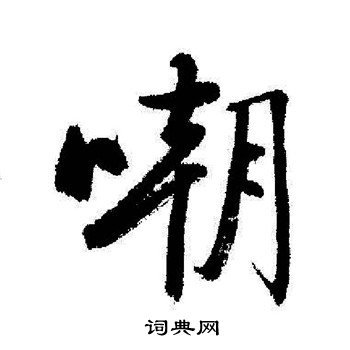 嘲
词典网